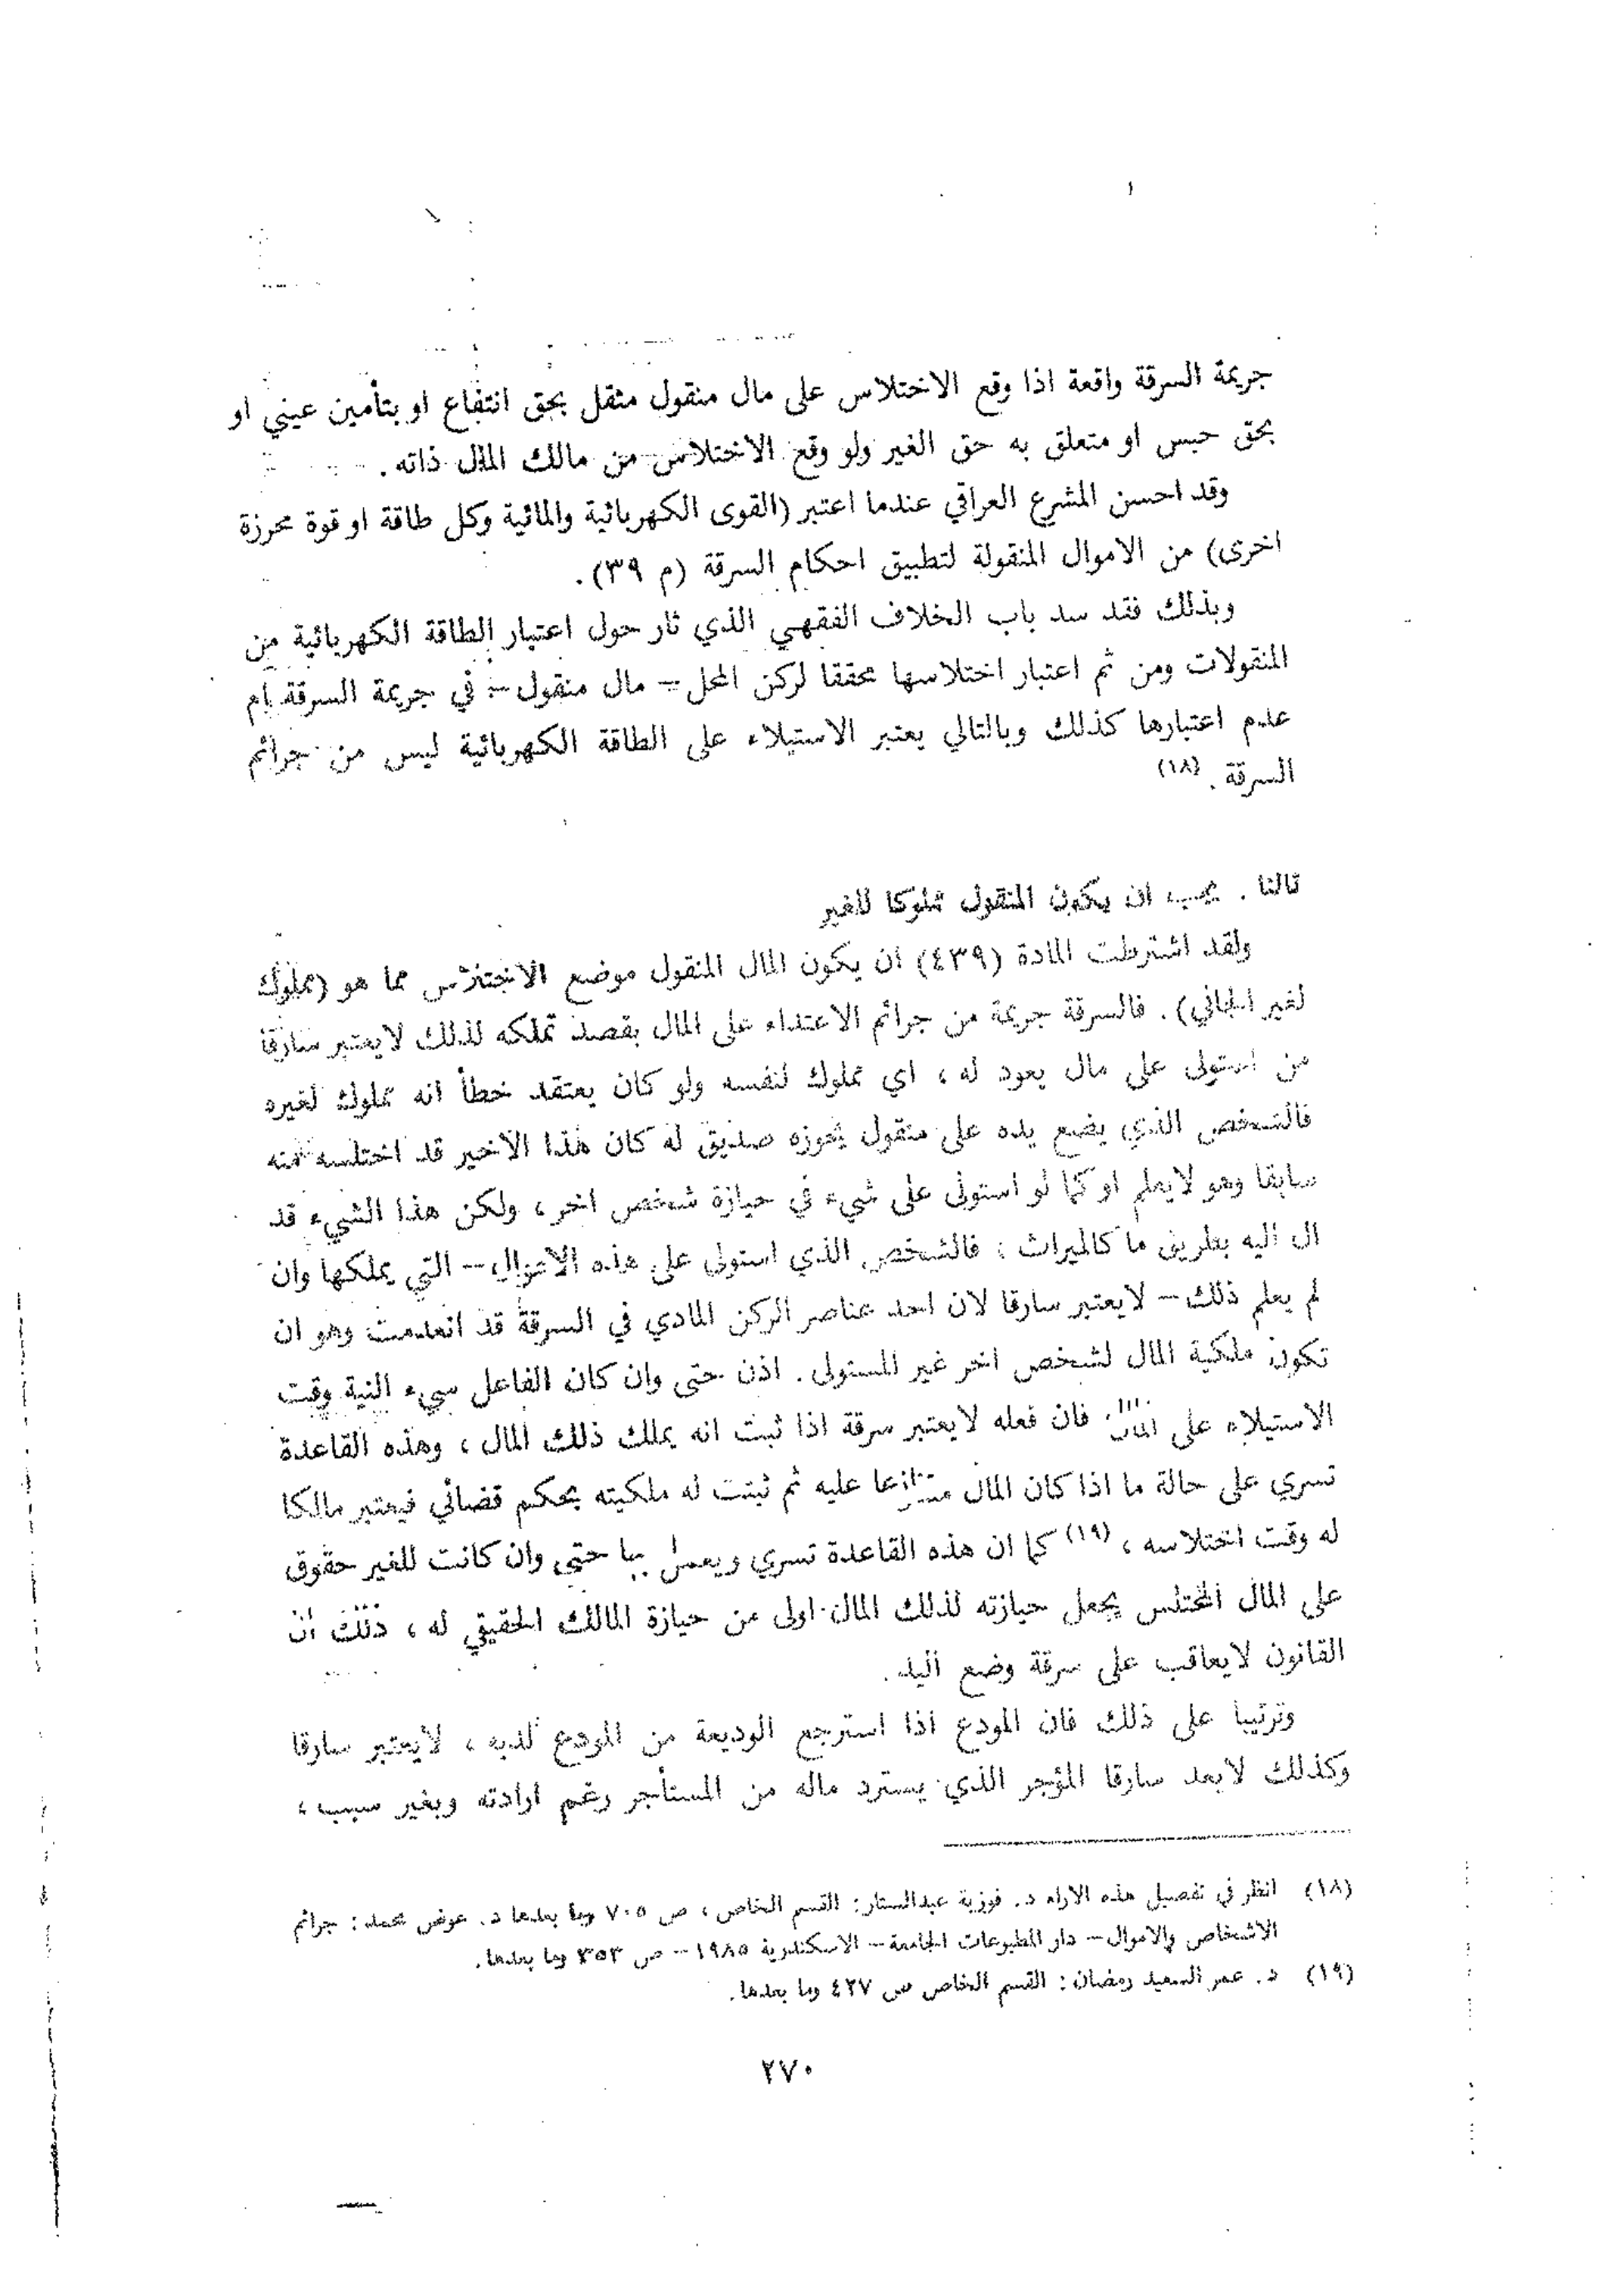 جريمة السرقة واقعة اذا وقع الاختلاس على مال منقول مثقل بحق انتفاع او بتأمين عيني او
بحق حبس او متعلق به حق الغير ولو وقع الاختلاس من مالك المال ذاته .
وقد احسن المشرع العراقي عندما اعتبر (القوى الكهربائية والمائية وكل طاقة او قوة محرزة
اخرى) من الاموال المنقولة لتطبيق احكام السرقة (م ٣٩) .
وبذلك فقد سد باب الخلاف الفقهي الذي ثار حول اعتبار الطاقة الكهربائية من
المنقولات ومن ثم اعتبار اختلاسها محققا لركن المحل – مال منقول – في جريمة السرقة ام
عدم اعتبارها كذلك وبالتالي يعتبر الاستيلاء على الطاقة الكهربائية ليس من جرائم
السرقة . (١٨)
ثالثا . يجب ان يكون المنقول مملوكا للغير
ولقد اشترطت المادة (٤٣٩) ان يكون المال المنقول موضع الاختلاس مما هو (مملوك
لغير الجاني) . فالسرقة جريمة من جرائم الاعتداء على المال بقصد تملكه لذلك لايعتبر سارقا
من استولى على مال يعود له ، اي مملوك لنفسه ولو كان يعتقد خطأ انه مملوك لغيره
فالشخص الذي يضع يده على منقول يحوزه صديق له كان هذا الاخير قد اختلسه منه
سابقا وهو لايعلم او كما لو استولى على شيء في حيازة شخص اخر ، ولكن هذا الشيء قد
ال اليه بطريق ما كالميراث ؛ فالشخص الذي استولى على هذه الاموال – التي يملكها وان
لم يعلم ذلك – لايعتبر سارقا لان احد عناصر الركن المادي في السرقة قد انعدمت وهو ان
تكون ملكية المال لشخص اخر غير المستولى . اذن حتى وان كان الفاعل سيء النية وقت
الاستيلاء على المال فان فعله لايعتبر سرقة اذا ثبت انه يملك ذلك المال ، وهذه القاعدة
تسري على حالة ما اذا كان المال متنازعا عليه ثم ثبتت له ملكيته بحكم قضائي فيعتبر مالكا
له وقت اختلاسه ، (١٩) كما ان هذه القاعدة تسري ويعمل بها حتى وان كانت للغير حقوق
على المال المختلس يجعل حيازته لذلك المال اولى من حيازة المالك الحقيقي له ، ذلك ان
القانون لايعاقب على سرقة وضع اليد .
وترتيبا على ذلك فان المودع اذا استرجع الوديعة من المودع لديه ، لايعتبر سارقا
وكذلك لايعد سارقا المؤجر الذي يسترد ماله من المستأجر رغم ارادته وبغير سبب ،
(١٨) انظر في تفصيل هذه الاراء د. فوزية عبدالستار: القسم الخاص ، ص ٧٠٥ وما بعدها د. عوض محمد : جرائم
الاشخاص والاموال – دار المطبوعات الجامعة – الاسكندرية ١٩٨٥ – ص ٣٥٣ وما بعدها .
(١٩) د. عمر السعيد رمضان : القسم الخاص ص ٤٢٧ وما بعدها .
٢٧٠